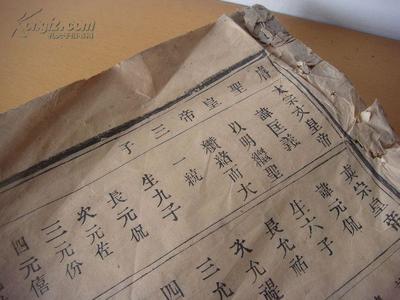 聖皇帝三子
太宗文皇帝
諱匡義
以明繼聖
纘緒而大
一統
生九子
長元侃
次元佐
三元份
四元僖
真宗皇帝
諱元侃
生六子
長允祐
次允禔
三允
四